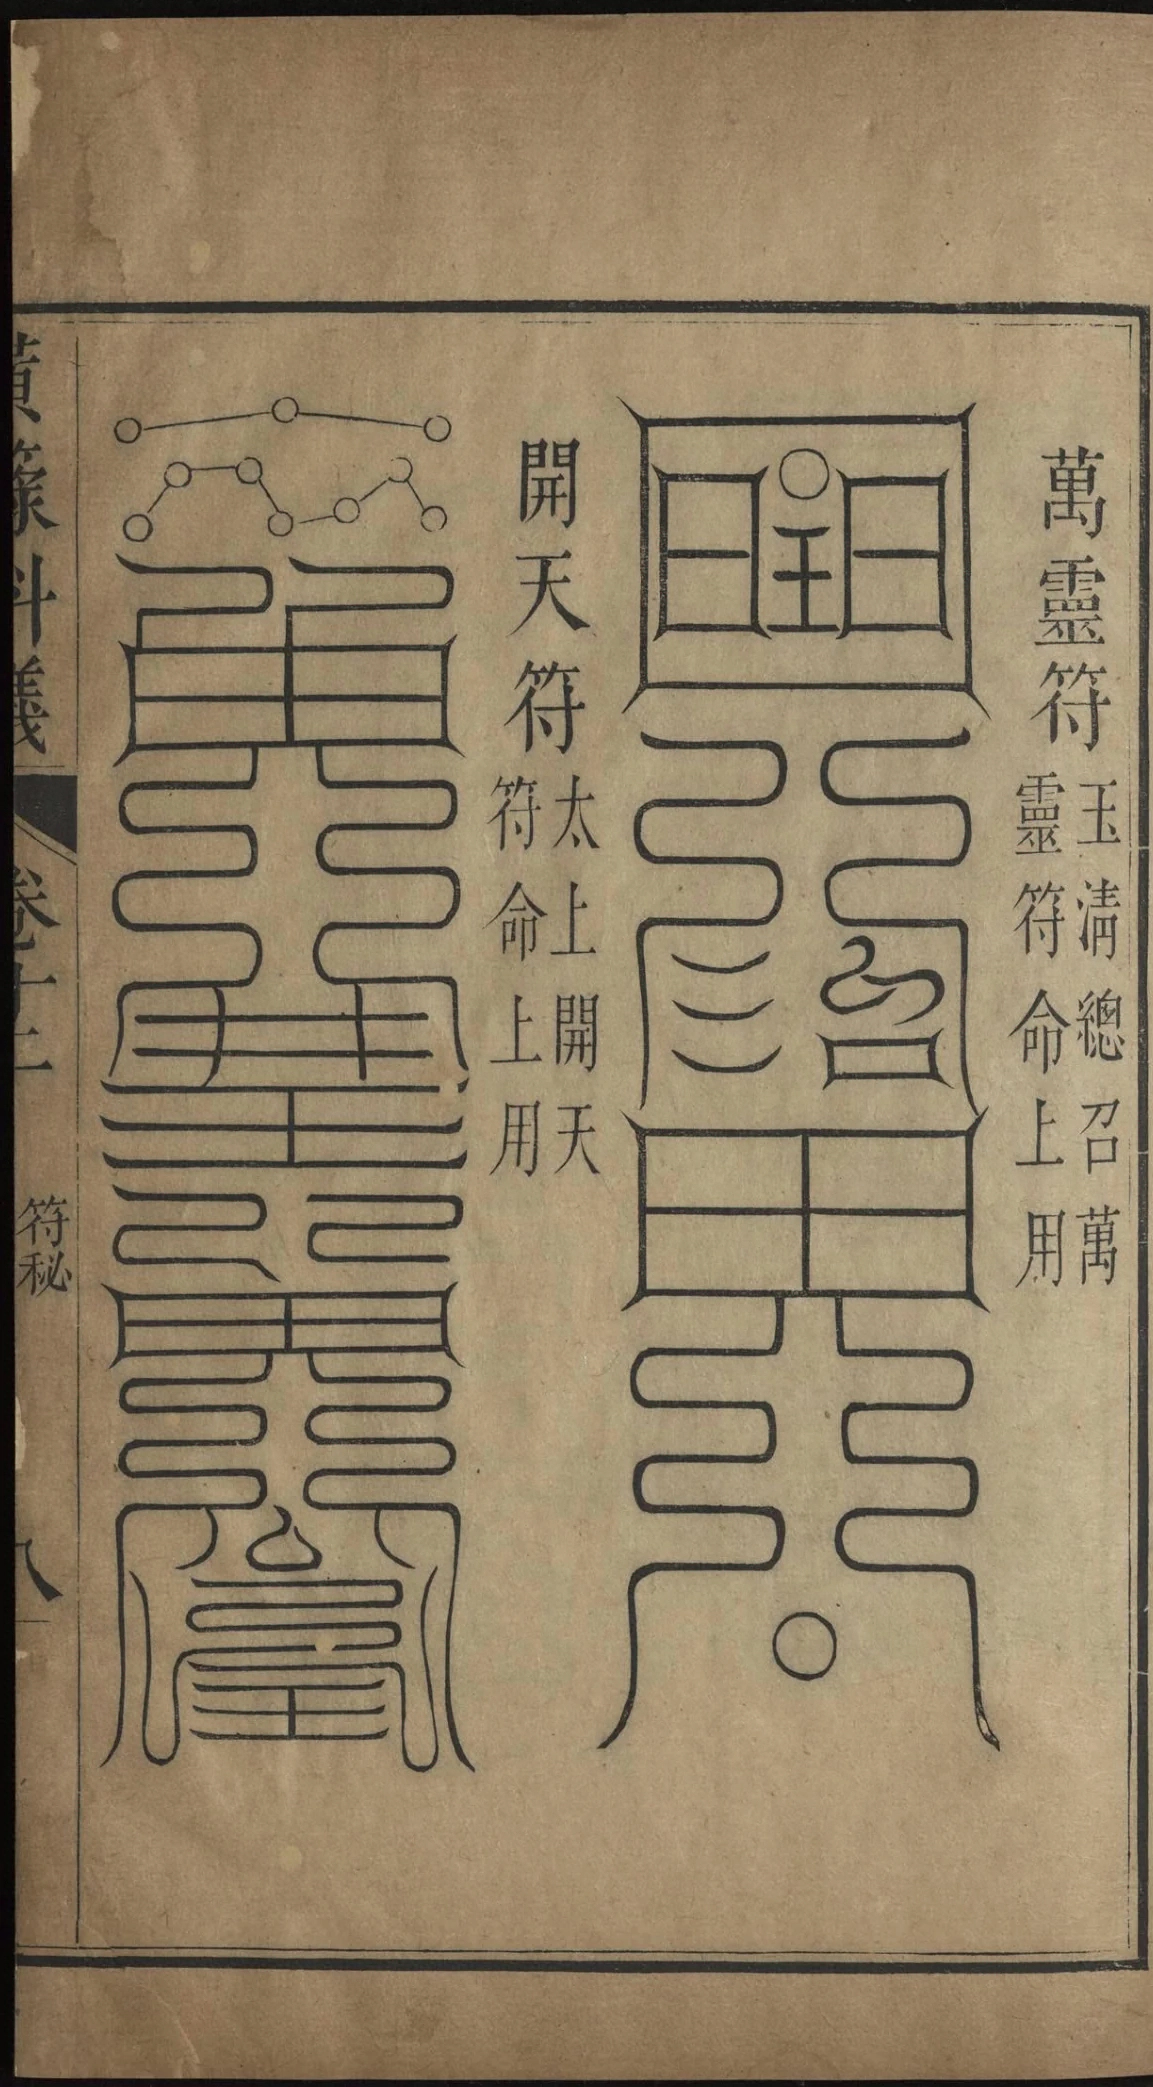 萬靈符
玉淸總召萬
靈符命上用
開天符
太上開天
符命上用
黃籙科儀
卷十二
符秘
八